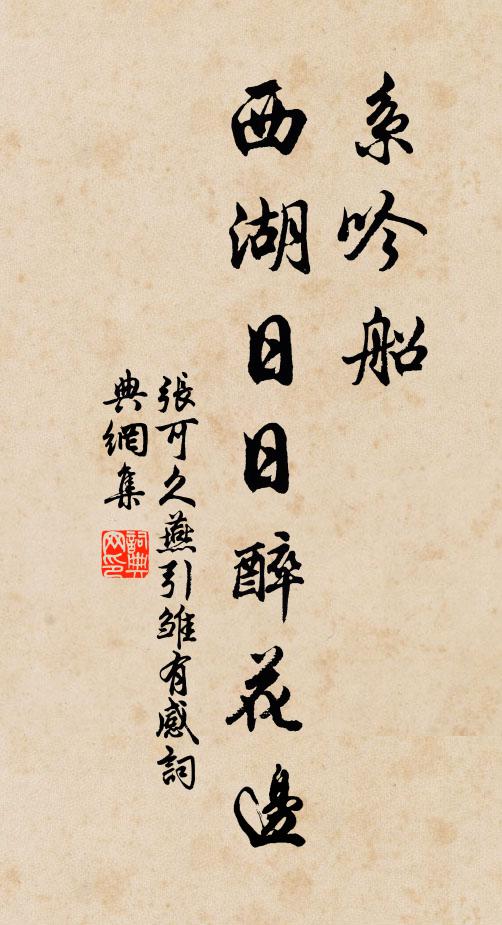 系吟船
西湖日日醉花邊
張可久燕引雏有感詞
典網集
詞典网印